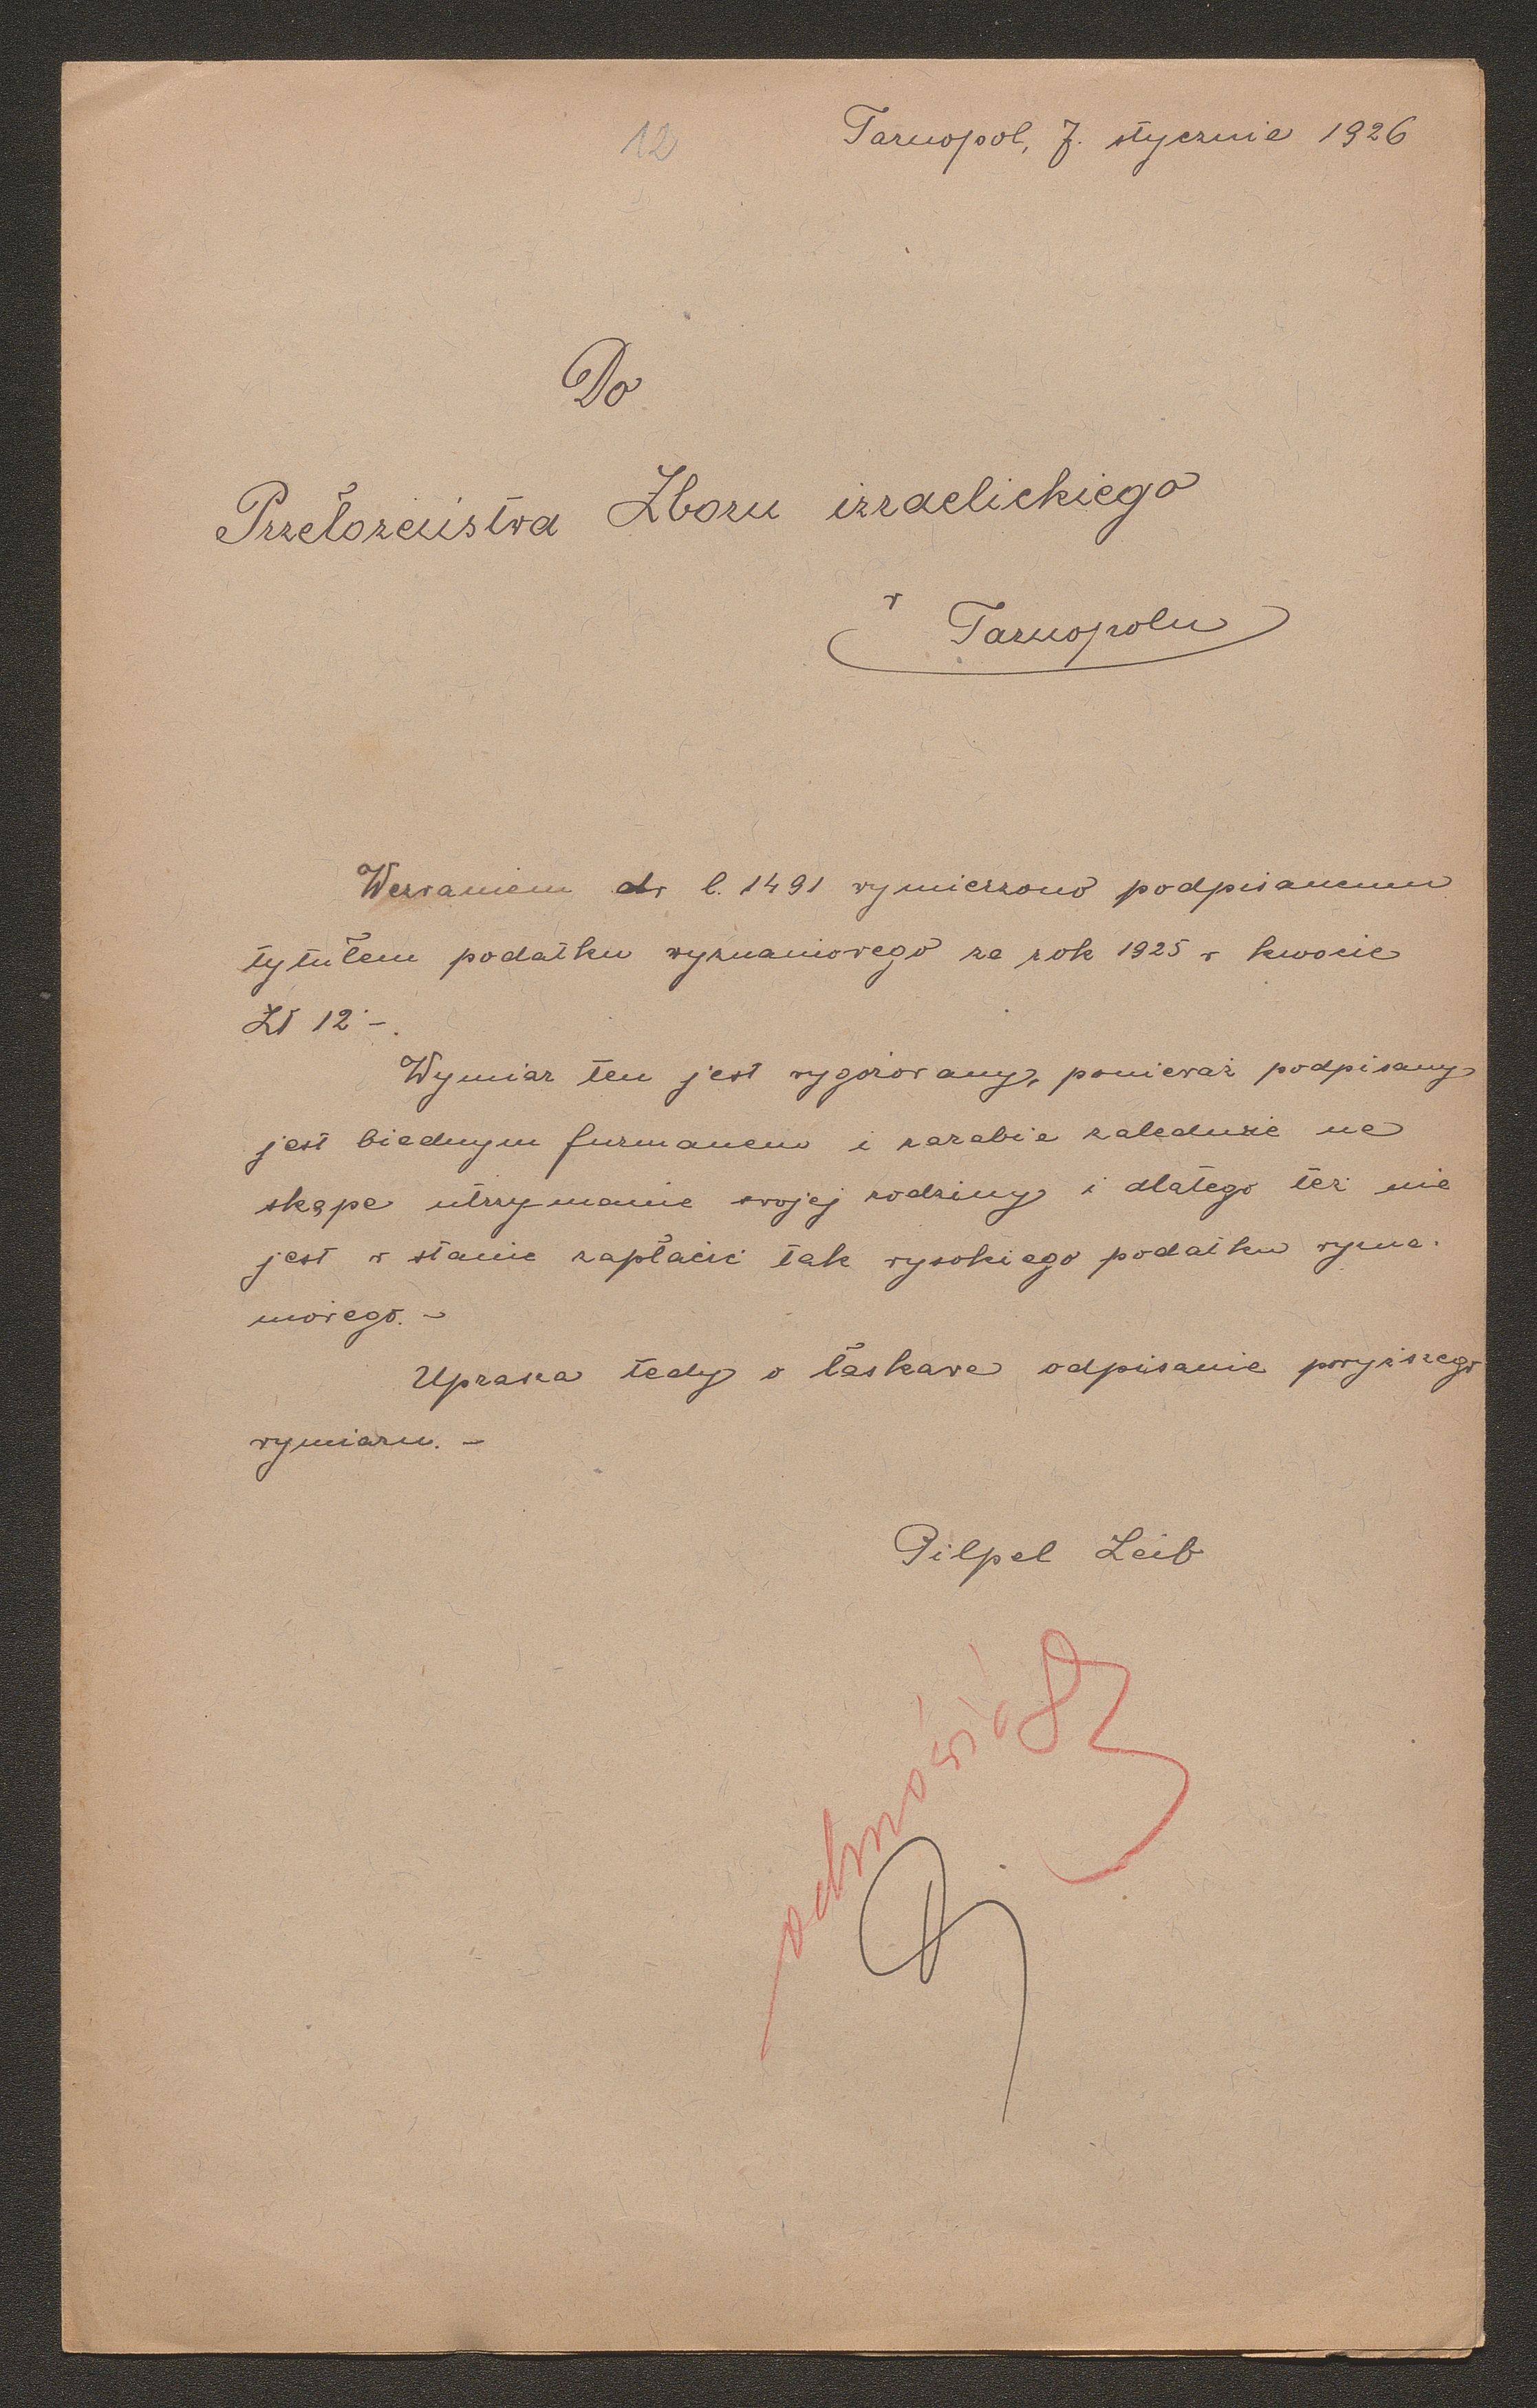 12
Tarnopol, 7. stycznia 1926
Do
Przełożeństwa Zboru izraelickiego
w Tarnopolu
Wezwaniem l. 1491 wymierzono podpisanemu
tytułem podatku wyznaniowego za rok 1925 w kwocie
Zł 12·-.
Wymiar ten jest wygórowany, ponieważ podpisany
jest biednym furmanem i zarabia zaledwie na
skąpe utrzymanie swojej rodziny i dlatego też nie
jest w stanie zapłacić tak wysokiego podatku wyzna-
niowego. -
Uprasza tedy o łaskawe odpisanie powyższego
wymiaru. -
Pilpel Leib
odmówić